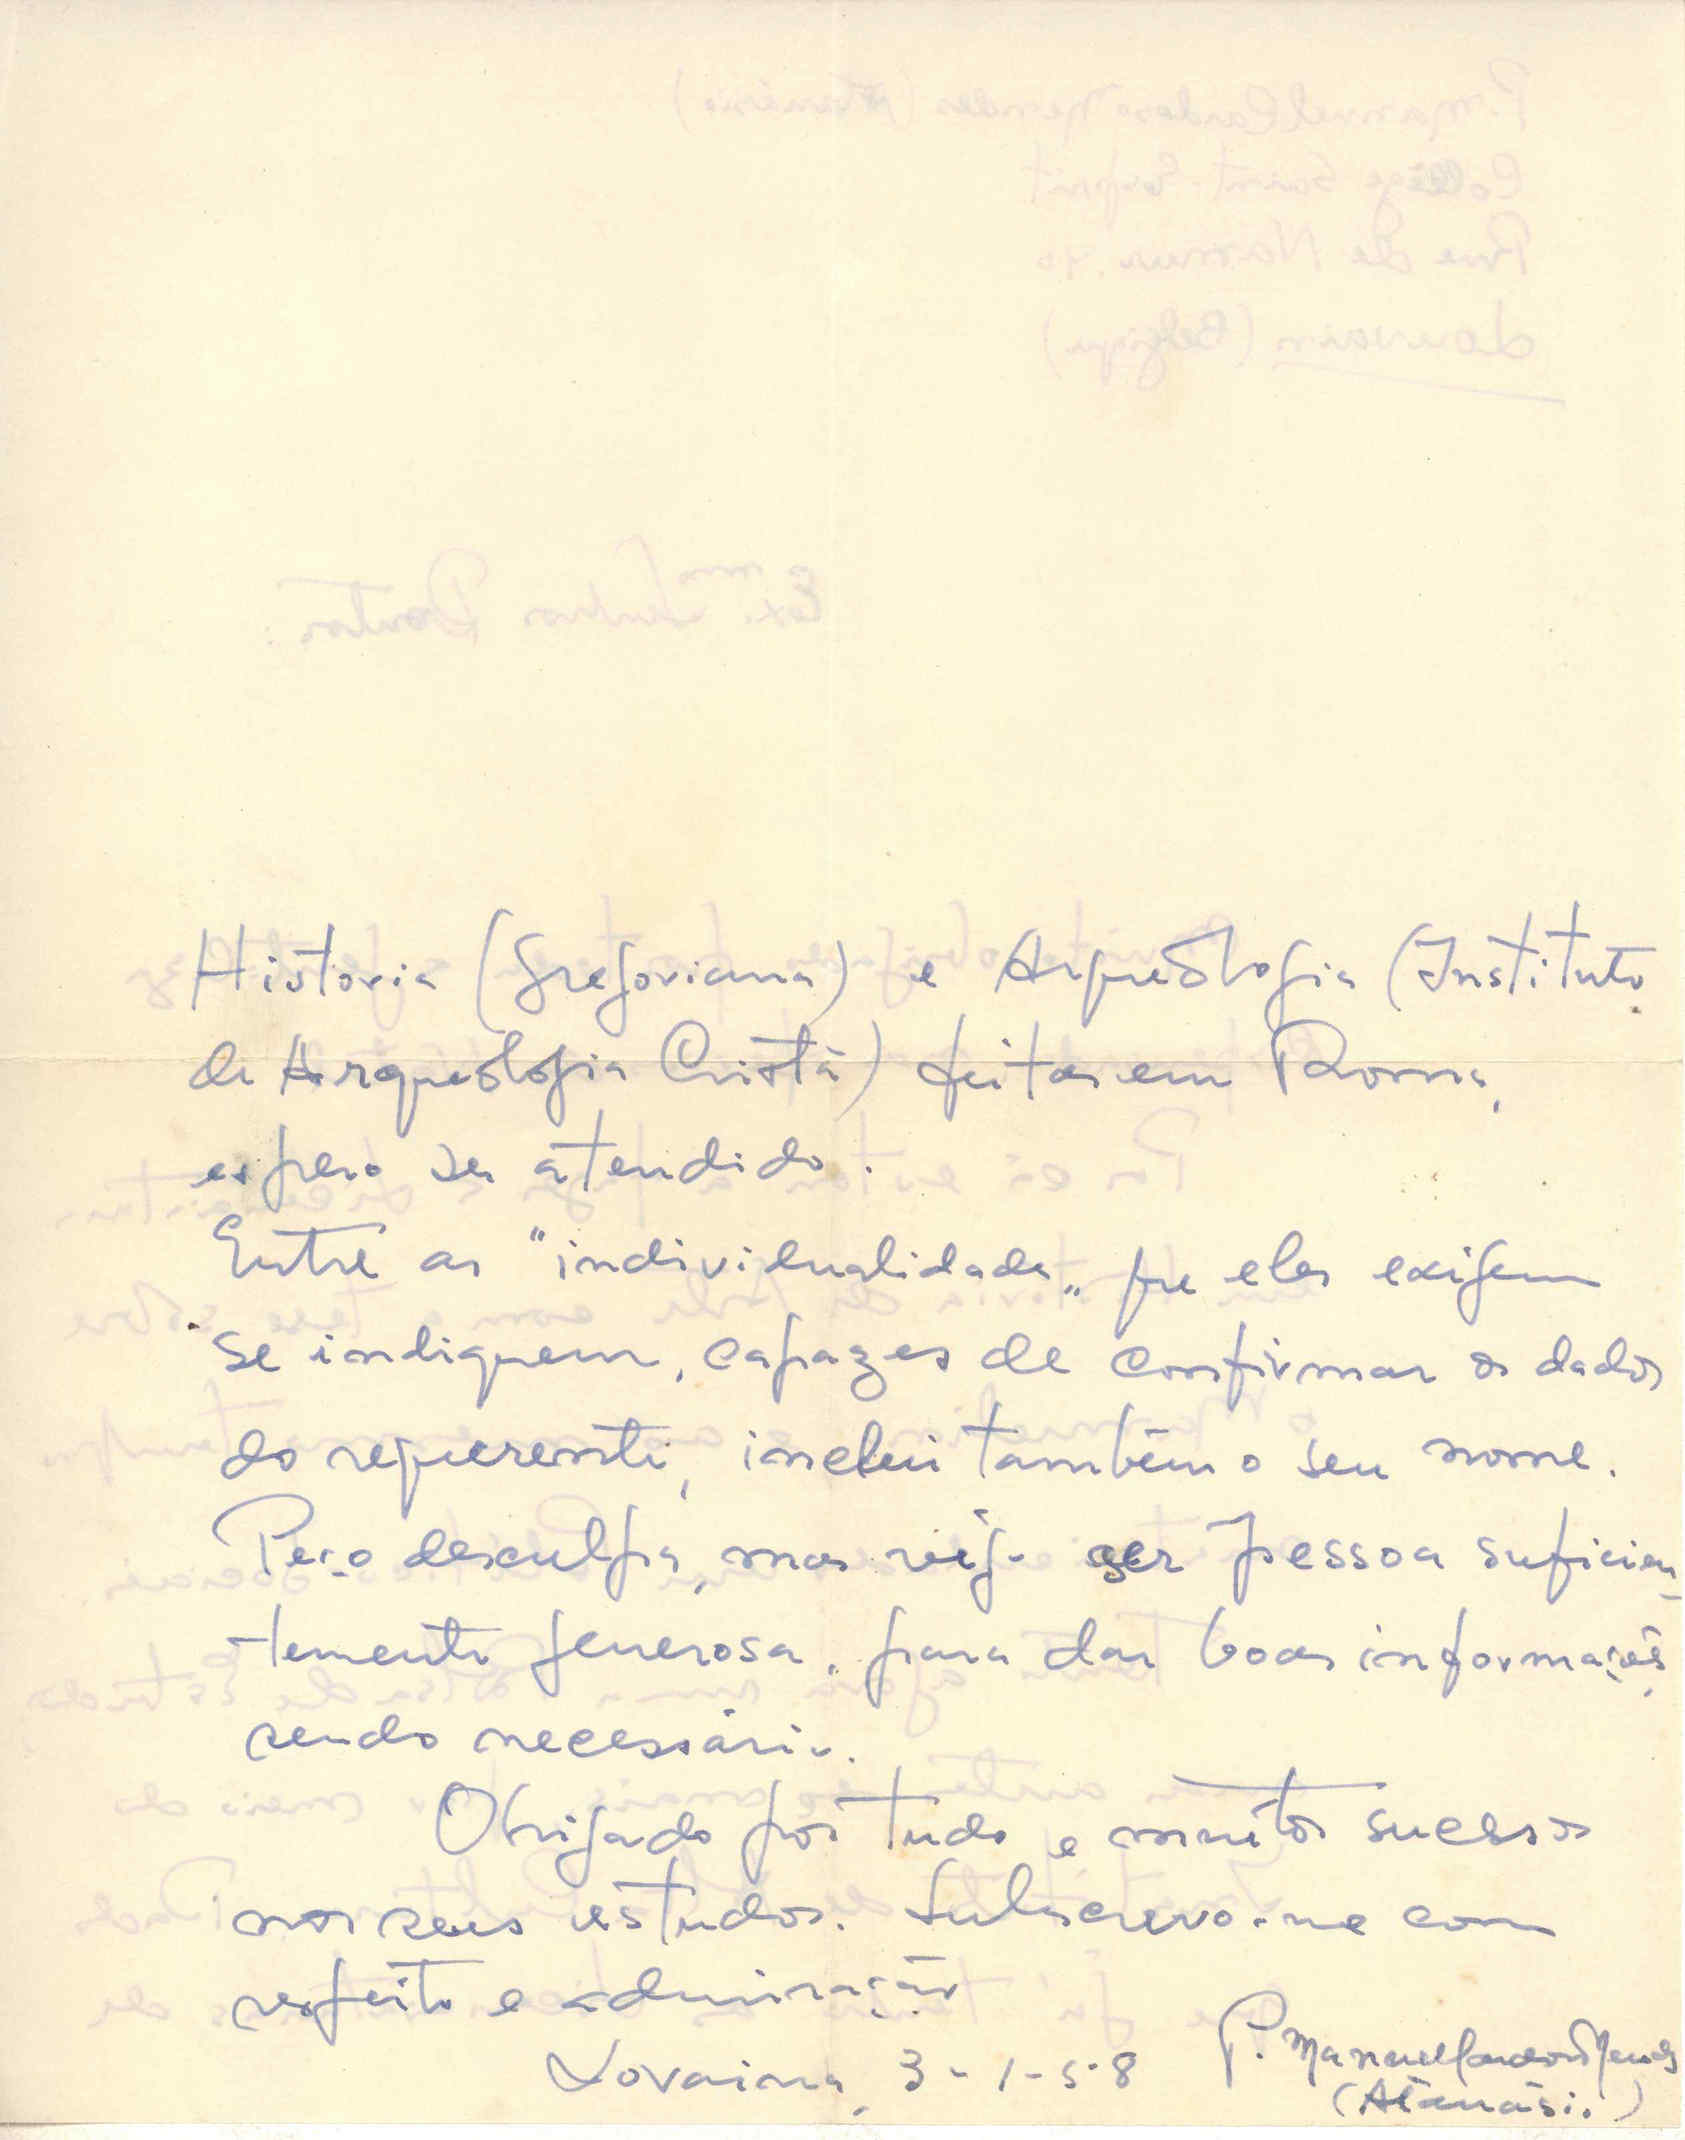 Historia (Gregoriana) e Arqueologia (Instituto
de Arqueologia Cristã) feitas em Roma,
espero ser atendido.
Entre as "individualidades" que eles exigem
se indiquem, capazes de confirmar os dados
do requerente, inclui também o seu nome.
Peço desculpa, mas vejo ser pessoa suficien-
temente generosa, para dar boas informações,
sendo necessário.
Obrigado por tudo e muitos sucessos
nos seus estudos. Subscrevo-me com
respeito e admiração
Lovaina, 3-1-58 P. Manuel Cardoso Mendes
(Atanásio)